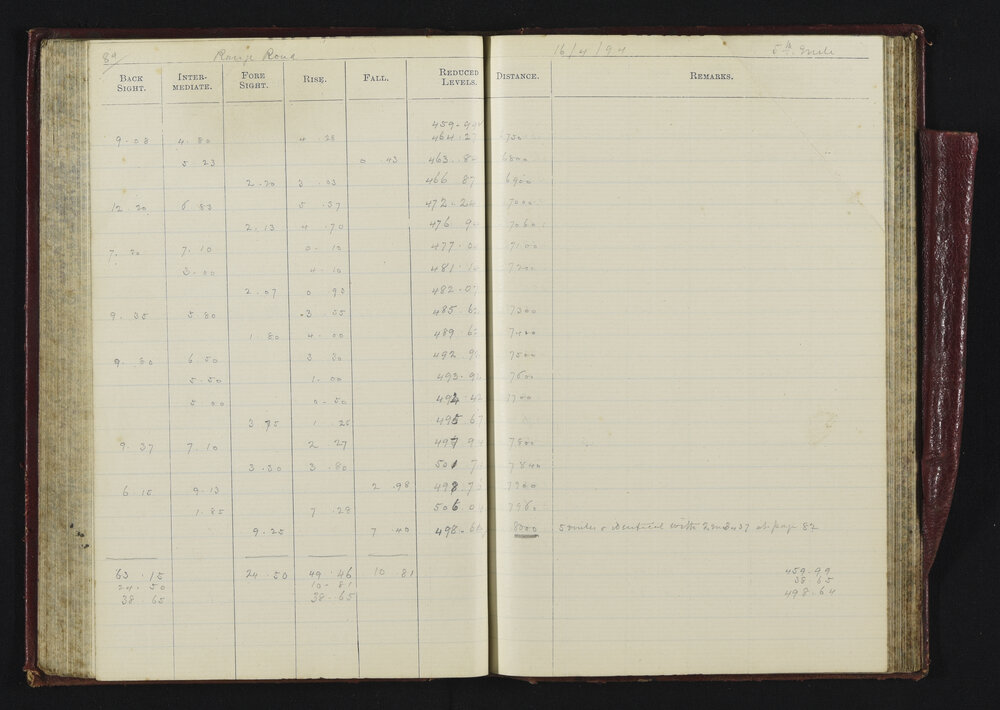 89/ Range Road 16/4/94 5th Mile
BACK SIGHT. INTERMEDIATE. FORE SIGHT. RISE. FALL. REDUCED LEVELS. DISTANCE. REMARKS.
459.99
9.08 4.80 4.28 464.27 6750
5 23 0 43 463.84 6800
2.20 3 03 466 87 6900
12 20 6 83 5 37 472.24 7000
2.13 4.70 476 94 7060
7.20 7.10 0.10 477.04 7100
3.00 4.10 481.14 7200
2.07 0 93 482.07
9.35 5 80 3 55 485.62 7300
1.80 4.00 489.62 7400
9.80 6.50 3 30 492 92 7500
5.50 1.00 493.92 7600
5 00 0.50 494 42 7700
3 75 1 25 495 67
9.37 7.10 2 27 497 94 7800
3.30 3.80 501 74 7840
6.15 9.13 2.98 498.76 7900
1.85 7.28 506.04 7960
9.25 7.40 498.64 8000 5 miles & identical with at page 82
63.15 24.50 49.46 10.81 459.99
24.50 10.81 38 65
38 65 38.65 498.64